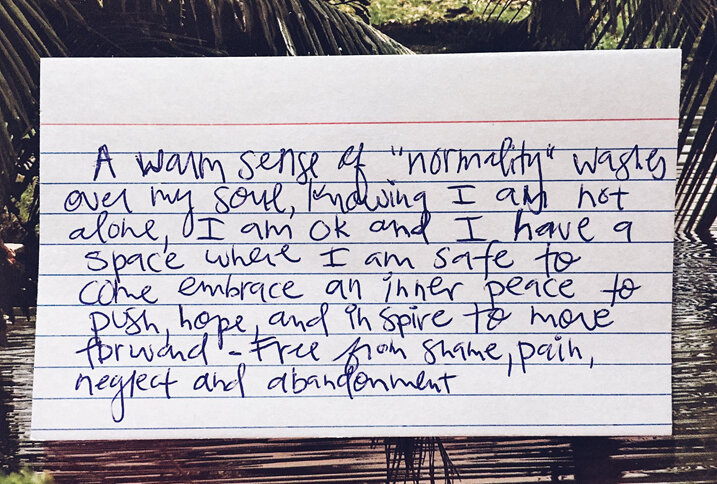 A warm sense of "normality" washes
over my soul, knowing I am not
alone, I am ok and I have a
space where I am safe to
come embrace an inner peace to
push, hope, and inspire to move
forward - Free from shame, pain,
neglect and abandonment